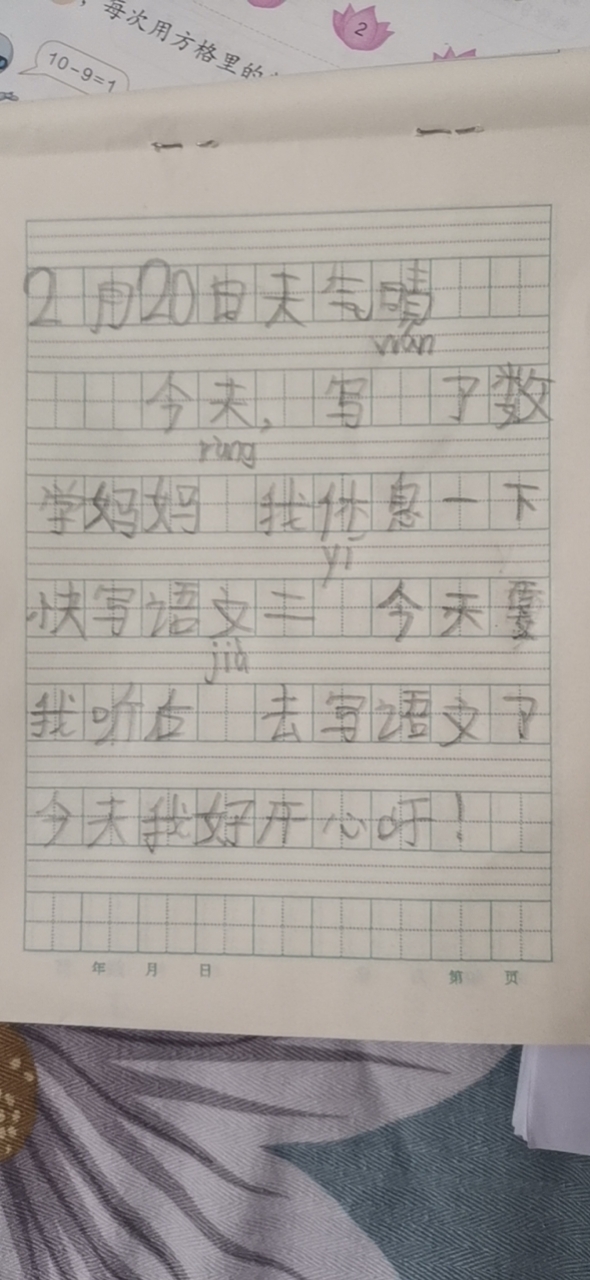 ，每次用方格里的
2
10-9=1
2月20日天气晴
wán
今天，写 了数
ràng
学妈妈 我休息一下
yǐ
快写语文二 今天要
jiù
我听 去写语文了
今天我好开心吖！
年 月 日 第 页